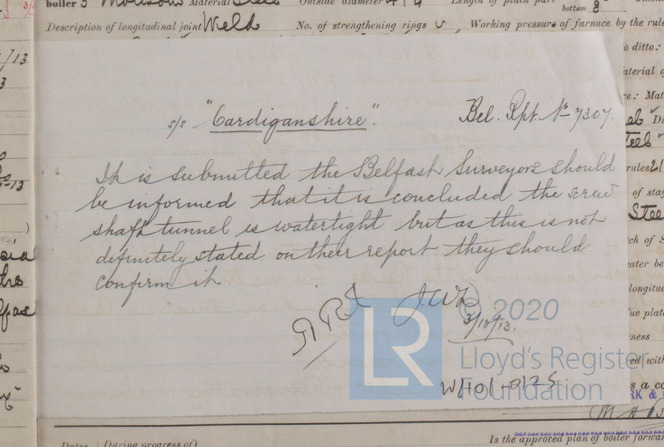 boiler 3 Material Steel Outside diameter Length of plain part
bottom 8
Description of longitudinal joint Weld No. of strengthening rings Working pressure of furnace by the rule
s/s "Cardiganshire". Bel. Rpt. No 7307
It is submitted the Belfast Surveyors should
be informed that it is concluded the screw
shaft tunnel is watertight but as this is not
definitely stated on their report they should
confirm it
3/10/13.
© 2020
LR
Lloyd's Register
Foundation
W/101-0125
Dates During progress of)
Is the approved plan of boiler forward